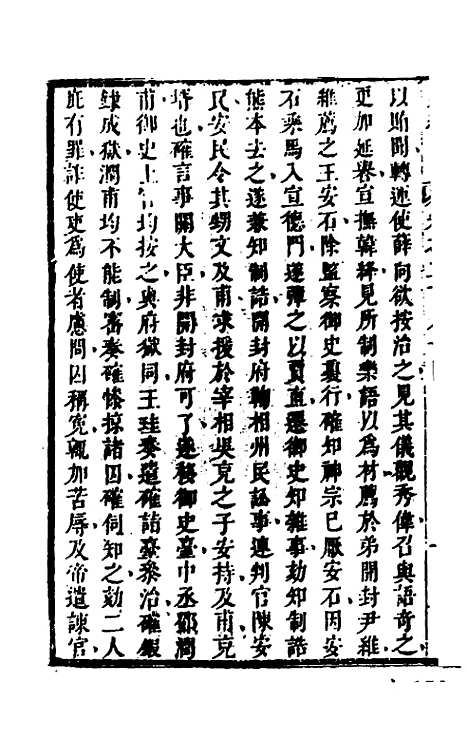 以賄聞轉運使薛向欲按治之見其儀觀秀偉召與語奇之
更加延譽宣撫韓絳見所制樂語以爲材薦於弟開封尹維
維薦之王安石除監察御史裏行確知神宗已厭安石因安
石乘馬入宣德門遂彈之以賈直遷御史知雜事劾知制誥
熊本去之遂兼知制誥開封府鞫相州民訟事連判官陳安
民安民令其甥文及甫求援於宰相吳充之子安持及甫充
壻也確言事關大臣非開封府可了遂移御史臺中丞鄧潤
甫御史上官均按之與府獄同王珪奏遣確詣臺參治確鍛
鍊成獄潤甫均不能制密奏確慘掠諸囚確伺知之劾二人
庇有罪詐使吏爲使者慮問囚稱冤輒加苦辱及帝遣諫官